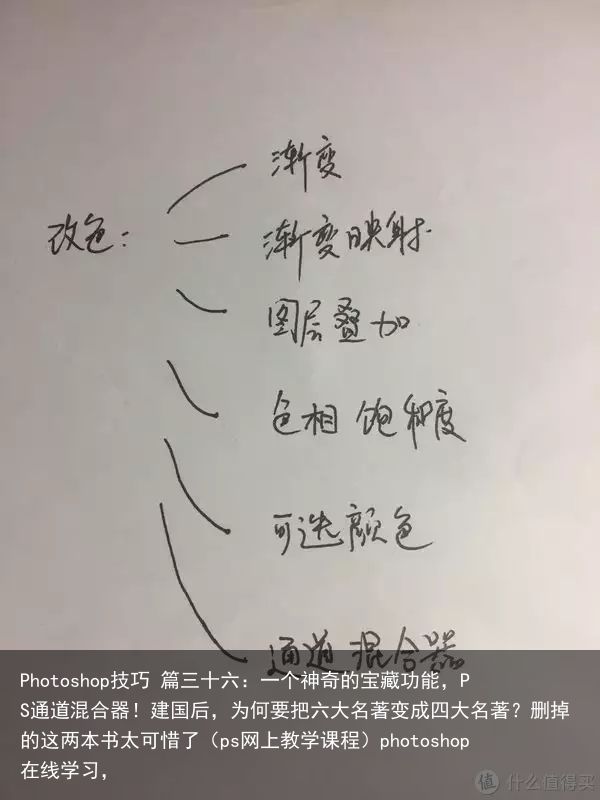 渐变
改色：
渐变映射
图层叠加
色相 饱和度
可选颜色
通道混合器
Photoshop技巧 篇三十六：一个神奇的宝藏功能，P
S通道混合器！建国后，为何要把六大名著变成四大名著？删掉
的这两本书太可惜了（ps网上教学课程）photoshop
在线学习，
值 什么值得买